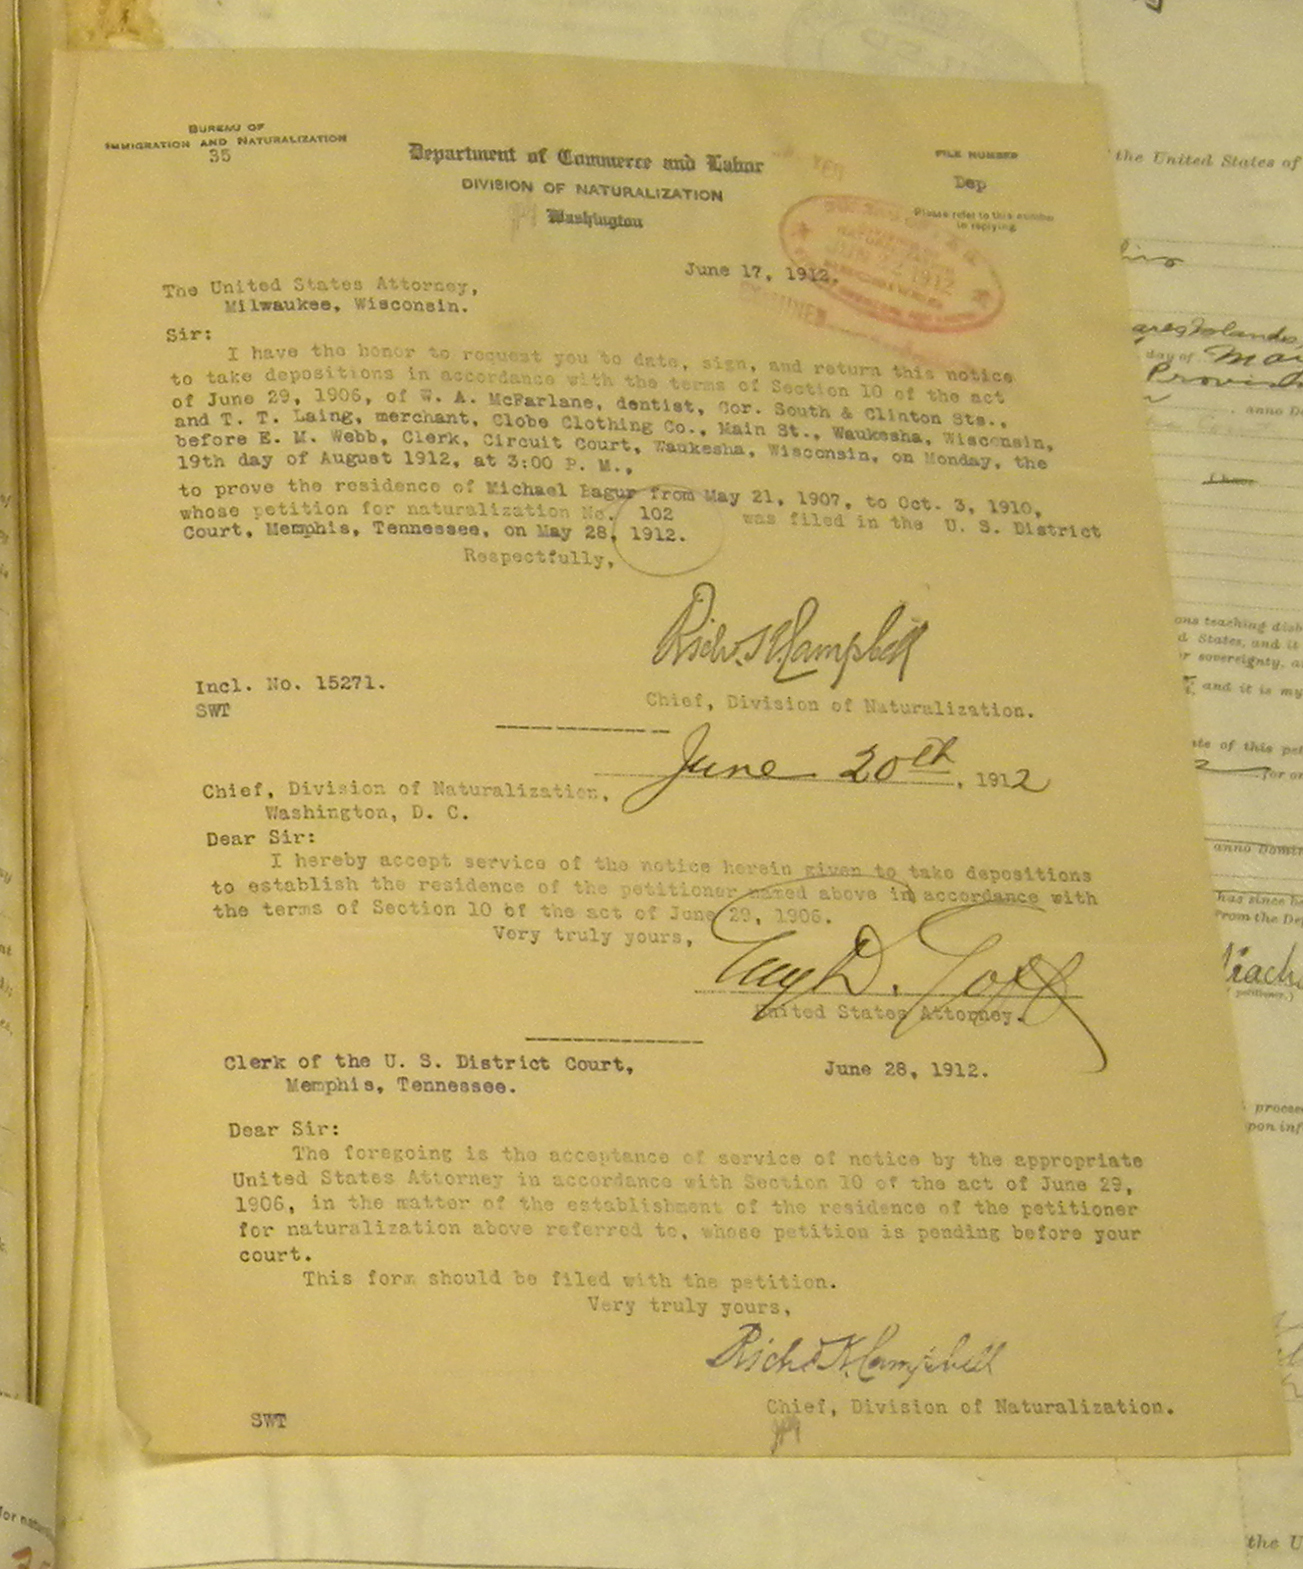 BUREAU OF
IMMIGRATION AND NATURALIZATION
35
Department of Commerce and Labor
DIVISION OF NATURALIZATION
Washington
FILE NUMBER
Dep
Please refer to this number
in replying.
June 17, 1912.
The United States Attorney,
Milwaukee, Wisconsin.
Sir:
I have the honor to request you to date, sign, and return this notice
to take depositions in accordance with the terms of Section 10 of the act
of June 29, 1906, of W. A. McFarlane, dentist, Cor. South & Clinton Sts.,
and T. T. Laing, merchant, Globe Clothing Co., Main St., Waukesha, Wisconsin,
before E. M. Webb, Clerk, Circuit Court, Waukesha, Wisconsin, on Monday, the
19th day of August 1912, at 3:00 P. M.,
to prove the residence of Michael Bagur from May 21, 1907, to Oct. 3, 1910,
whose petition for naturalization No. 102 was filed in the U. S. District
Court, Memphis, Tennessee, on May 28, 1912.
Respectfully,
Richd. K. Campbell
Chief, Division of Naturalization.
Incl. No. 15271.
SWT
June 20th, 1912
Chief, Division of Naturalization,
Washington, D. C.
Dear Sir:
I hereby accept service of the notice herein given to take depositions
to establish the residence of the petitioner named above in accordance with
the terms of Section 10 of the act of June 29, 1906.
Very truly yours,
Guy D. Goff
United States Attorney.
Clerk of the U. S. District Court,
Memphis, Tennessee.
June 28, 1912.
Dear Sir:
The foregoing is the acceptance of service of notice by the appropriate
United States Attorney in accordance with Section 10 of the act of June 29,
1906, in the matter of the establishment of the residence of the petitioner
for naturalization above referred to, whose petition is pending before your
court.
This form should be filed with the petition.
Very truly yours,
Richd K. Campbell
Chief, Division of Naturalization.
SWT
the United States of
day of May
anno D
ons teaching dis
d States, and it
r sovereignty, a
and it is my
te of this pet
for
anno Domi
has since
From the De
(petitioner.)
procee
pon inf
the U
for